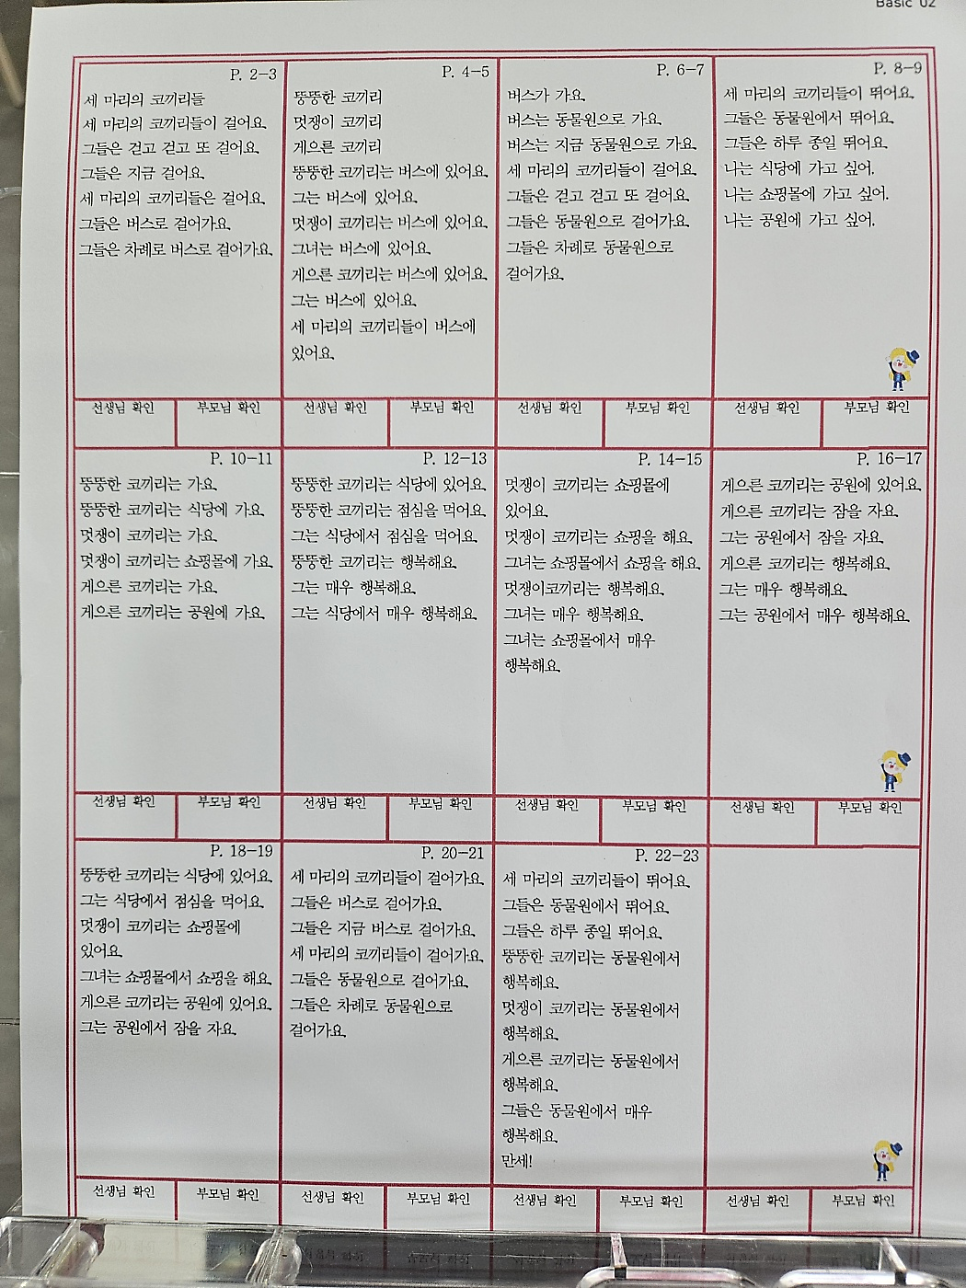 Basic 02
P. 2-3
세 마리의 코끼리들
세 마리의 코끼리들이 걸어요.
그들은 걷고 걷고 또 걸어요.
그들은 지금 걸어요.
세 마리의 코끼리들은 걸어요.
그들은 버스로 걸어가요.
그들은 차례로 버스로 걸어가요.
선생님 확인
부모님 확인
P. 4-5
뚱뚱한 코끼리
멋쟁이 코끼리
게으른 코끼리
뚱뚱한 코끼리는 버스에 있어요.
그는 버스에 있어요.
멋쟁이 코끼리는 버스에 있어요.
그녀는 버스에 있어요.
게으른 코끼리는 버스에 있어요.
그는 버스에 있어요.
세 마리의 코끼리들이 버스에
있어요.
선생님 확인
부모님 확인
P. 6-7
버스가 가요.
버스는 동물원으로 가요.
버스는 지금 동물원으로 가요.
세 마리의 코끼리들이 걸어요.
그들은 걷고 걷고 또 걸어요.
그들은 동물원으로 걸어가요.
그들은 차례로 동물원으로
걸어가요.
선생님 확인
부모님 확인
P. 8-9
세 마리의 코끼리들이 뛰어요.
그들은 동물원에서 뛰어요.
그들은 하루 종일 뛰어요.
나는 식당에 가고 싶어.
나는 쇼핑몰에 가고 싶어.
나는 공원에 가고 싶어.
선생님 확인
부모님 확인
P. 10-11
뚱뚱한 코끼리는 가요.
뚱뚱한 코끼리는 식당에 가요.
멋쟁이 코끼리는 가요.
멋쟁이 코끼리는 쇼핑몰에 가요.
게으른 코끼리는 가요.
게으른 코끼리는 공원에 가요.
선생님 확인
부모님 확인
P. 12-13
뚱뚱한 코끼리는 식당에 있어요.
뚱뚱한 코끼리는 점심을 먹어요.
그는 식당에서 점심을 먹어요.
뚱뚱한 코끼리는 행복해요.
그는 매우 행복해요.
그는 식당에서 매우 행복해요.
선생님 확인
부모님 확인
P. 14-15
멋쟁이 코끼리는 쇼핑몰에
있어요.
멋쟁이 코끼리는 쇼핑을 해요.
그녀는 쇼핑몰에서 쇼핑을 해요.
멋쟁이코끼리는 행복해요.
그녀는 매우 행복해요.
그녀는 쇼핑몰에서 매우
행복해요.
선생님 확인
부모님 확인
P. 16-17
게으른 코끼리는 공원에 있어요.
게으른 코끼리는 잠을 자요.
그는 공원에서 잠을 자요.
게으른 코끼리는 행복해요.
그는 매우 행복해요.
그는 공원에서 매우 행복해요.
선생님 확인
부모님 확인
P. 18-19
뚱뚱한 코끼리는 식당에 있어요.
그는 식당에서 점심을 먹어요.
멋쟁이 코끼리는 쇼핑몰에
있어요.
그녀는 쇼핑몰에서 쇼핑을 해요.
게으른 코끼리는 공원에 있어요.
그는 공원에서 잠을 자요.
선생님 확인
부모님 확인
P. 20-21
세 마리의 코끼리들이 걸어가요.
그들은 버스로 걸어가요.
그들은 지금 버스로 걸어가요.
세 마리의 코끼리들이 걸어가요.
그들은 동물원으로 걸어가요.
그들은 차례로 동물원으로
걸어가요.
선생님 확인
부모님 확인
P. 22-23
세 마리의 코끼리들이 뛰어요.
그들은 동물원에서 뛰어요.
그들은 하루 종일 뛰어요.
뚱뚱한 코끼리는 동물원에서
행복해요.
멋쟁이 코끼리는 동물원에서
행복해요.
게으른 코끼리는 동물원에서
행복해요.
그들은 동물원에서 매우
행복해요.
만세!
선생님 확인
부모님 확인
선생님 확인
부모님 확인